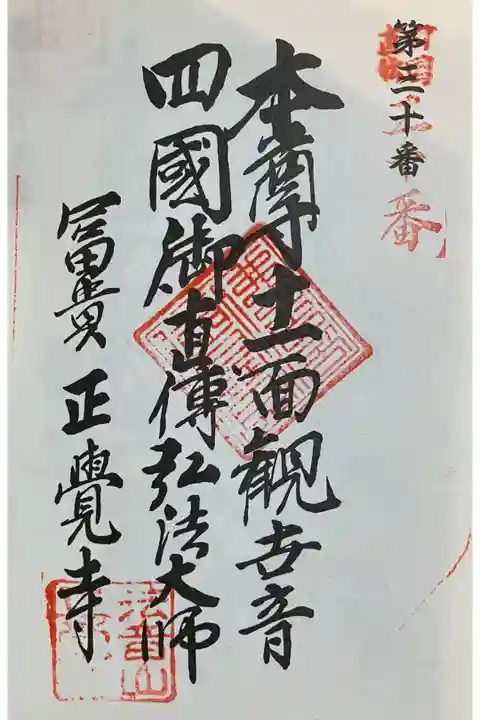 第三十番
番
本尊十一面觀世音
四國御直傳弘法大師
冨貴 正覺寺